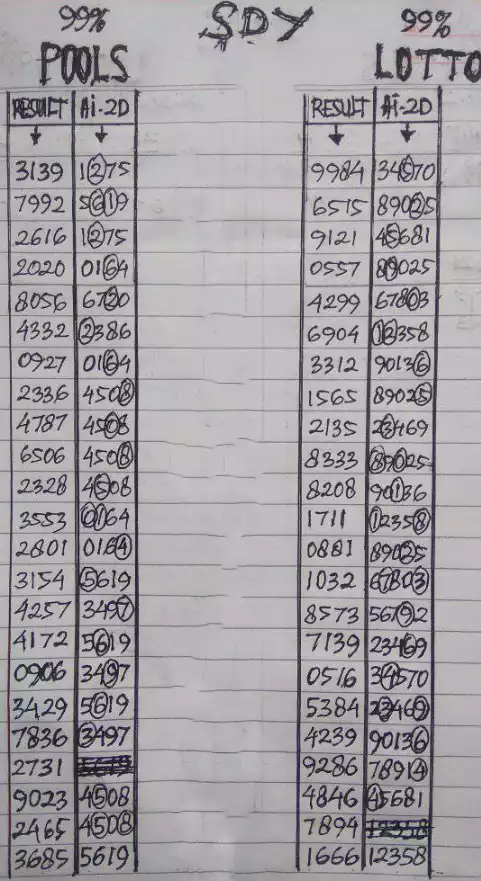 99% SDY 99%
POOLS LOTTO
RESULT Ai-2D RESULT Ai-2D
3139 1275 9984 34570
7992 5619 6515 89025
2616 1275 9121 45681
2020 0164 0557 89025
8056 6720 4299 67803
4332 2386 6904 12358
0927 0164 3312 90136
2336 4508 1565 89025
4787 4508 2135 23469
6506 4508 8333 89025
2328 4508 8208 90136
3553 0164 1711 12358
2801 0164 0881 89025
3154 5619 1032 67803
4257 3497 8573 56792
4172 5619 7139 23469
0906 3497 0516 34570
3429 5619 5384 23469
7836 3497 4239 90136
2731 5619 9286 78914
9023 4508 4846 45681
2465 4508 7894 12358
3685 5619 1666 12358